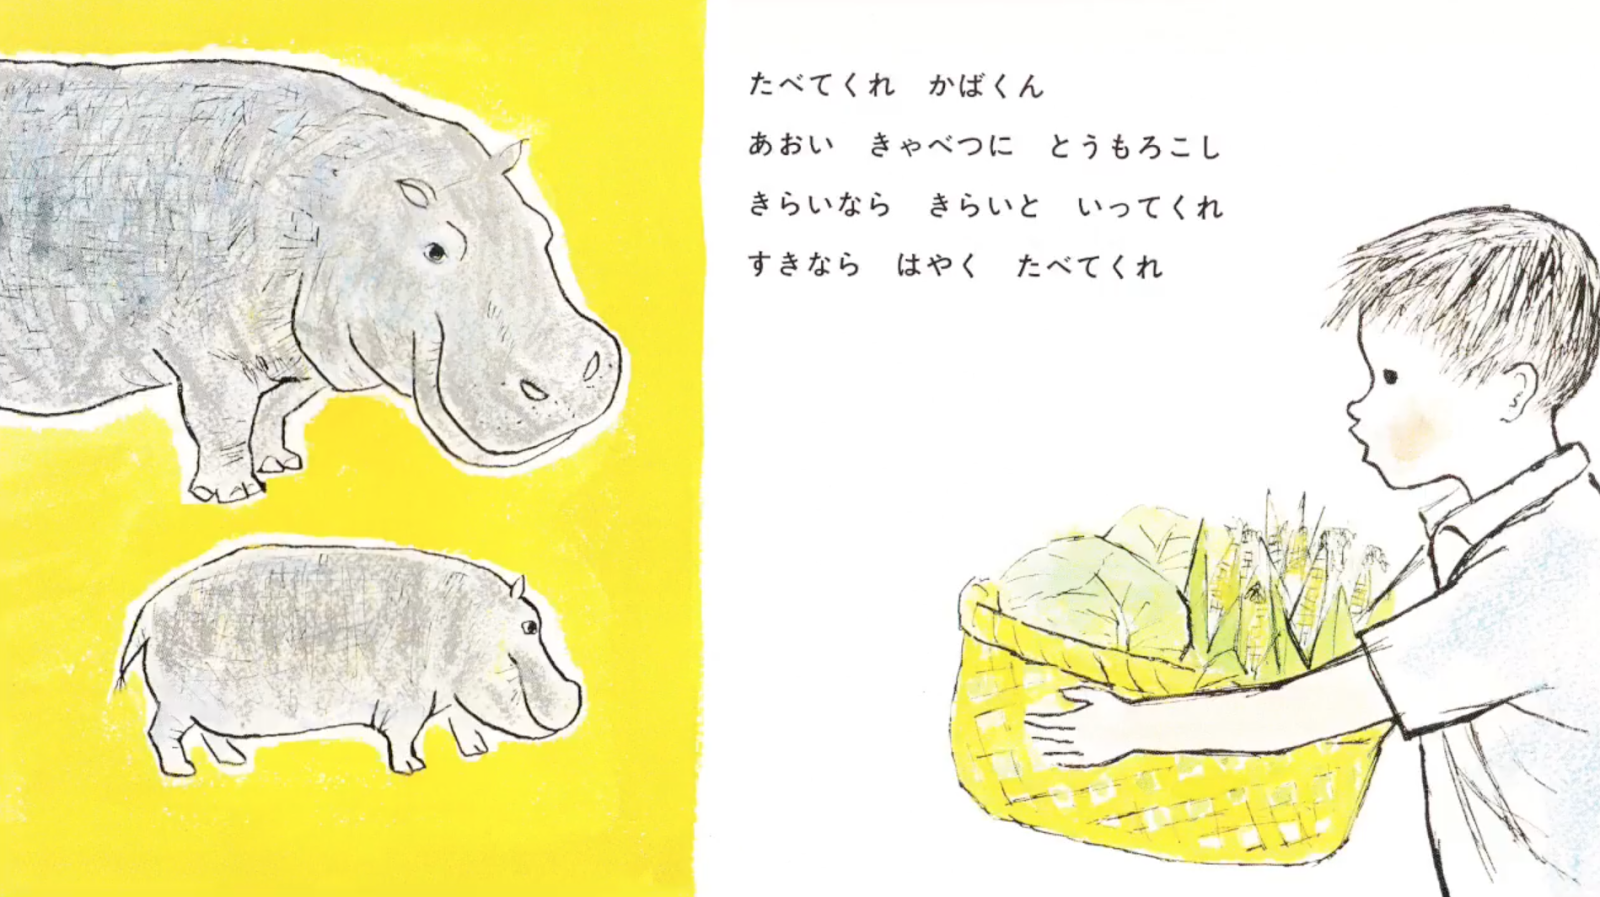 たべてくれ　かばくん
あおい　きゃべつに　とうもろこし
きらいなら　きらいと　いってくれ
すきなら　はやく　たべてくれ